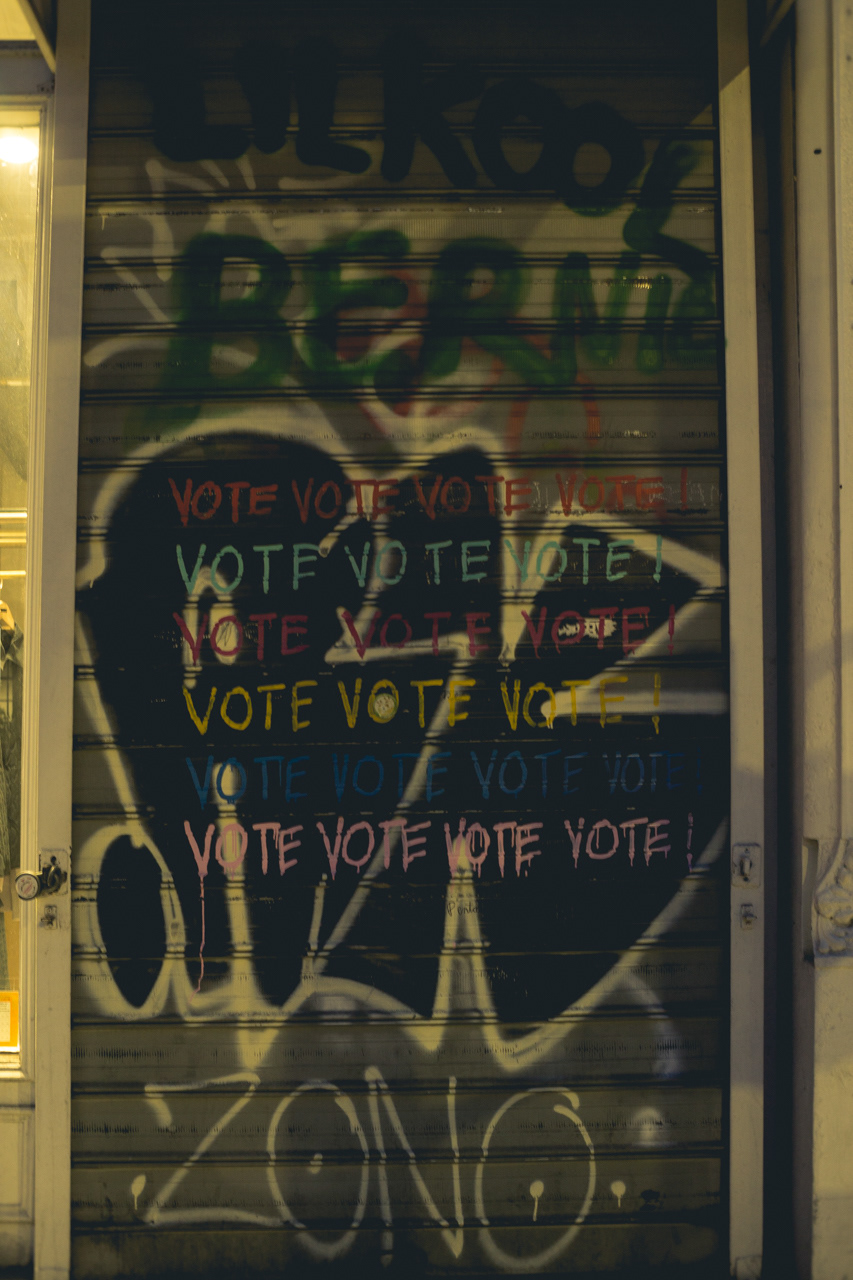 LIL KOOL
BERNIE
VOTE VOTE VOTE VOTE!
VOTE VOTE VOTE!
VOTE VOTE VOTE!
VOTE VOTE VOTE!
VOTE VOTE VOTE VOTE!
VOTE VOTE VOTE VOTE!
ZONO.